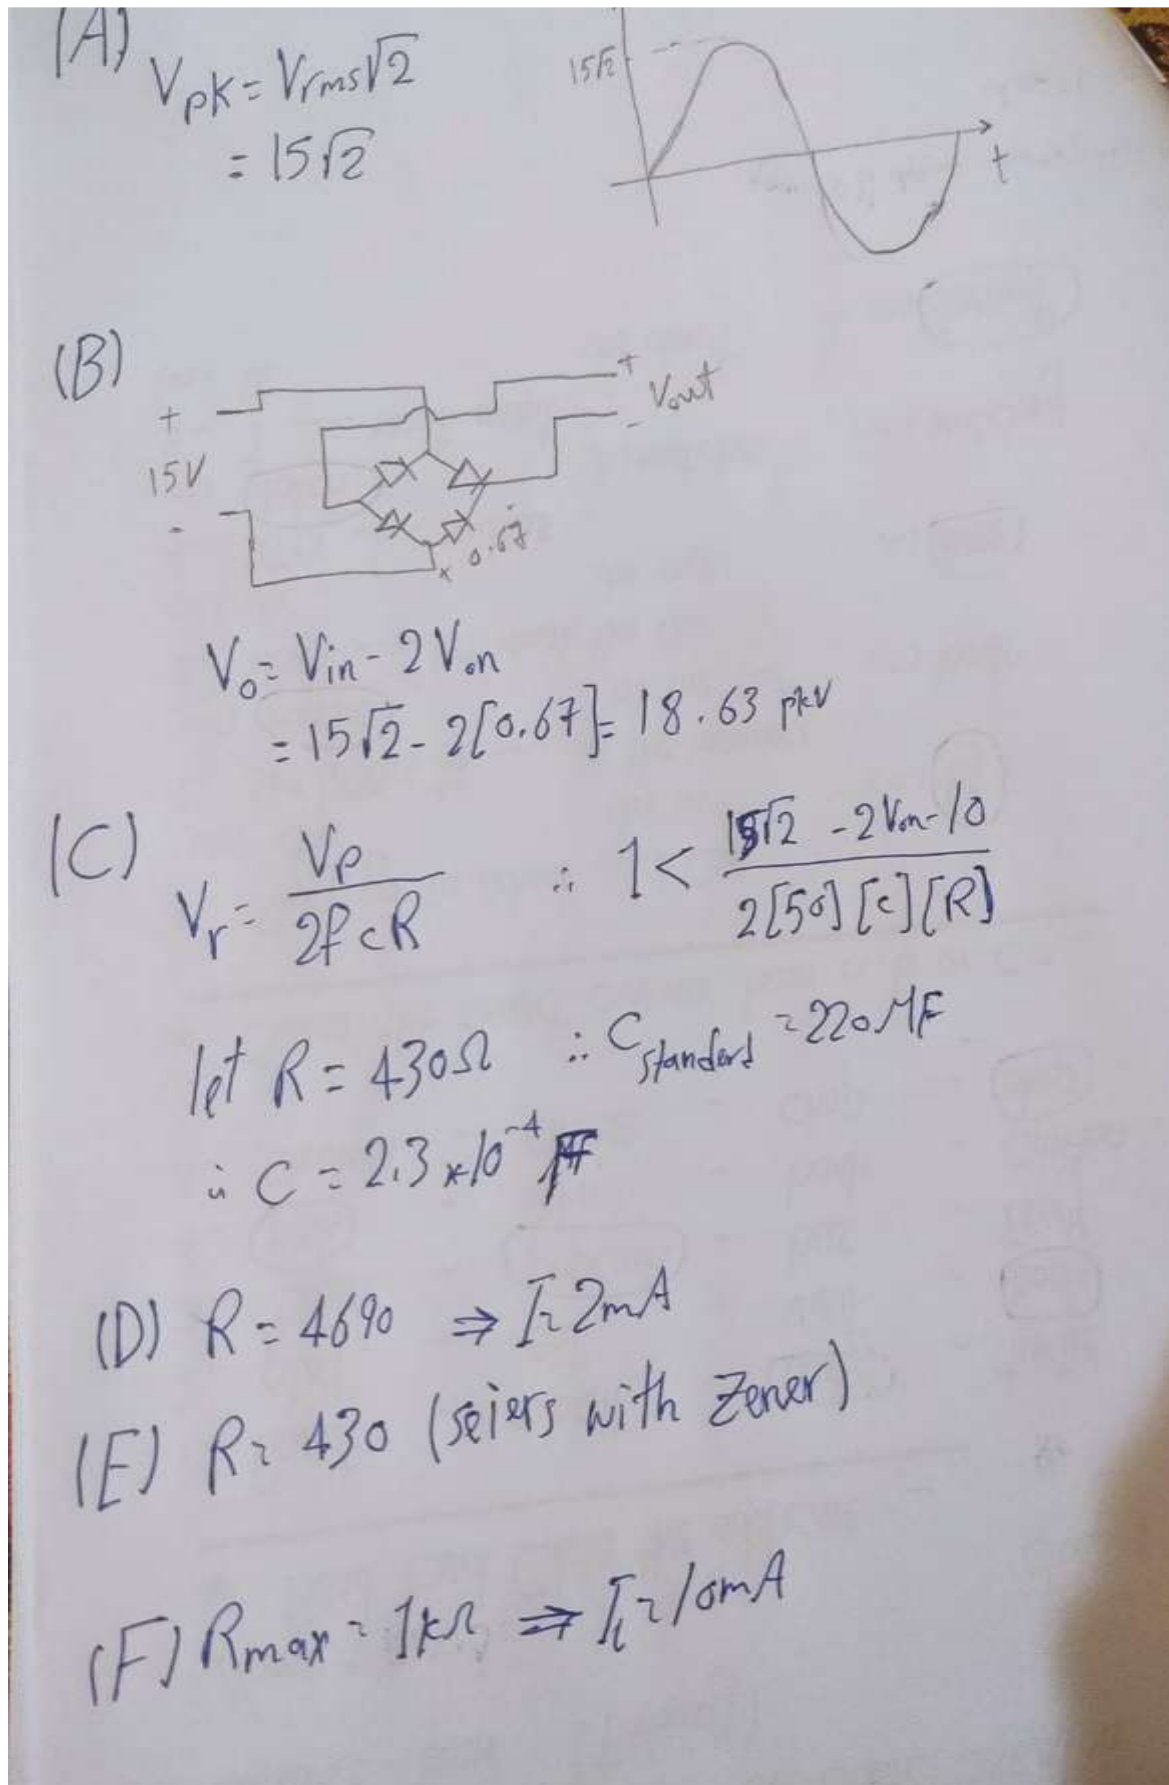 (A)
Vpk = Vrms√2
= 15√2
15√2
t
(B)
+
15V
-
+
Vout
-
0.67
Vo = Vin - 2Von
= 15√2 - 2[0.67] = 18.63 pkV
(C)
Vr = Vp / 2fcR ∴ 1 < 15√2 - 2Von - 10 / 2[50][c][R]
let R = 430Ω ∴ Cstanderd = 220MF
∴ C = 2.3 x 10^-4
(D) R = 4690 ⇒ I = 2mA
(E) R = 430 (seiers with Zener)
(F) Rmax = 1kΩ ⇒ IL = 10mA